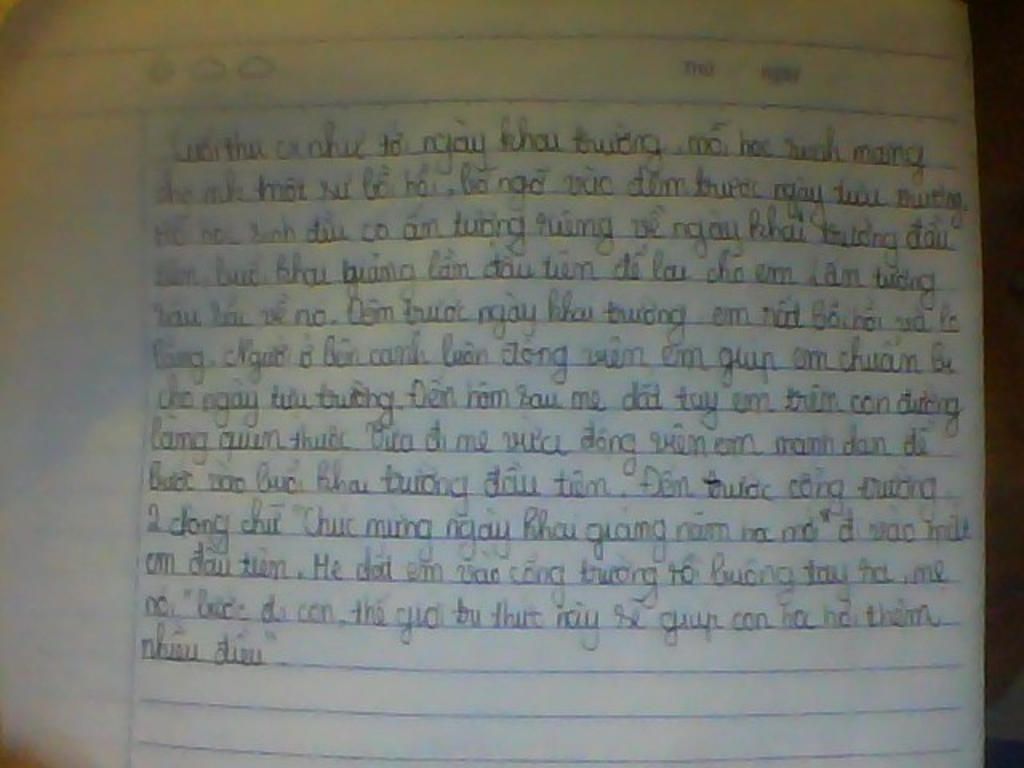 Thứ ngày
Cuối thu cứ như tới ngày khai trường, mỗi học sinh mang
cho mình một sự bồi hồi, bỡ ngỡ vào đêm trước ngày tựu trường.
Mỗi học sinh đều có ấn tượng riêng về ngày khai trường đầu
tiên, buổi khai giảng lần đầu tiên để lại cho em ấn tượng
sâu sắc về nó. Đêm trước ngày khai trường em rất bồi hồi và lo
lắng. Người ở bên cạnh luôn động viên em giúp em chuẩn bị
cho ngày tựu trường. Đến hôm sau mẹ dắt tay em trên con đường
làng quen thuộc. Vừa đi mẹ vừa động viên em mạnh dạn để
bước vào buổi khai trường đầu tiên. Đến trước cổng trường
2 dòng chữ "Chúc mừng ngày khai giảng năm học mới" đi vào mắt
em đầu tiên. Mẹ dắt em vào cổng trường rồi buông tay ra, mẹ
nói "bước đi con, thế giới tri thức này sẽ giúp con học hỏi thêm
nhiều điều".